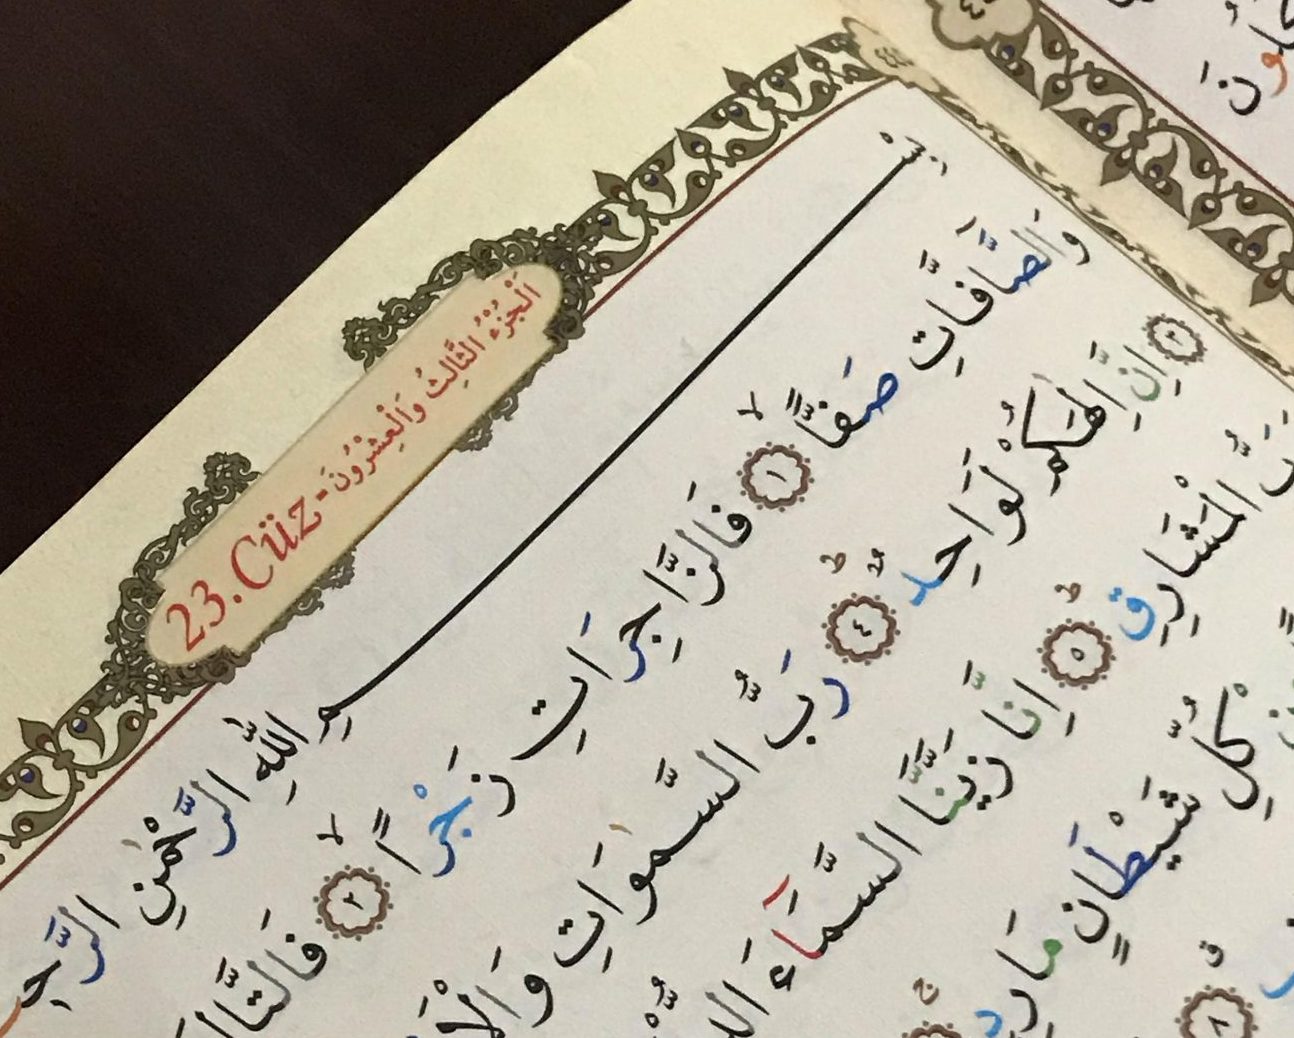 23.Cüz - اَلْجُزْءُ الثَّالِثُ وَالْعِشْرُونَ
بِسْمِ اللّٰهِ الرَّحْمٰنِ الرَّح
وَالصَّٓافَّاتِ صَفًّاۙ ﴿١﴾ فَالزَّاجِرَاتِ زَجْرًاۙ ﴿٢﴾ فَالتَّالِ
﴿٣﴾ اِنَّ اِلٰهَكُمْ لَوَاحِدٌۜ ﴿٤﴾ رَبُّ السَّمٰوَاتِ وَالْاَ
رَبُّ الْمَشَارِقِۜ ﴿٥﴾ اِنَّا زَيَّنَّا السَّمَٓاءَ الد
كُلِّ شَيْطَانٍ مَارِدٍۚ
﴿٨﴾